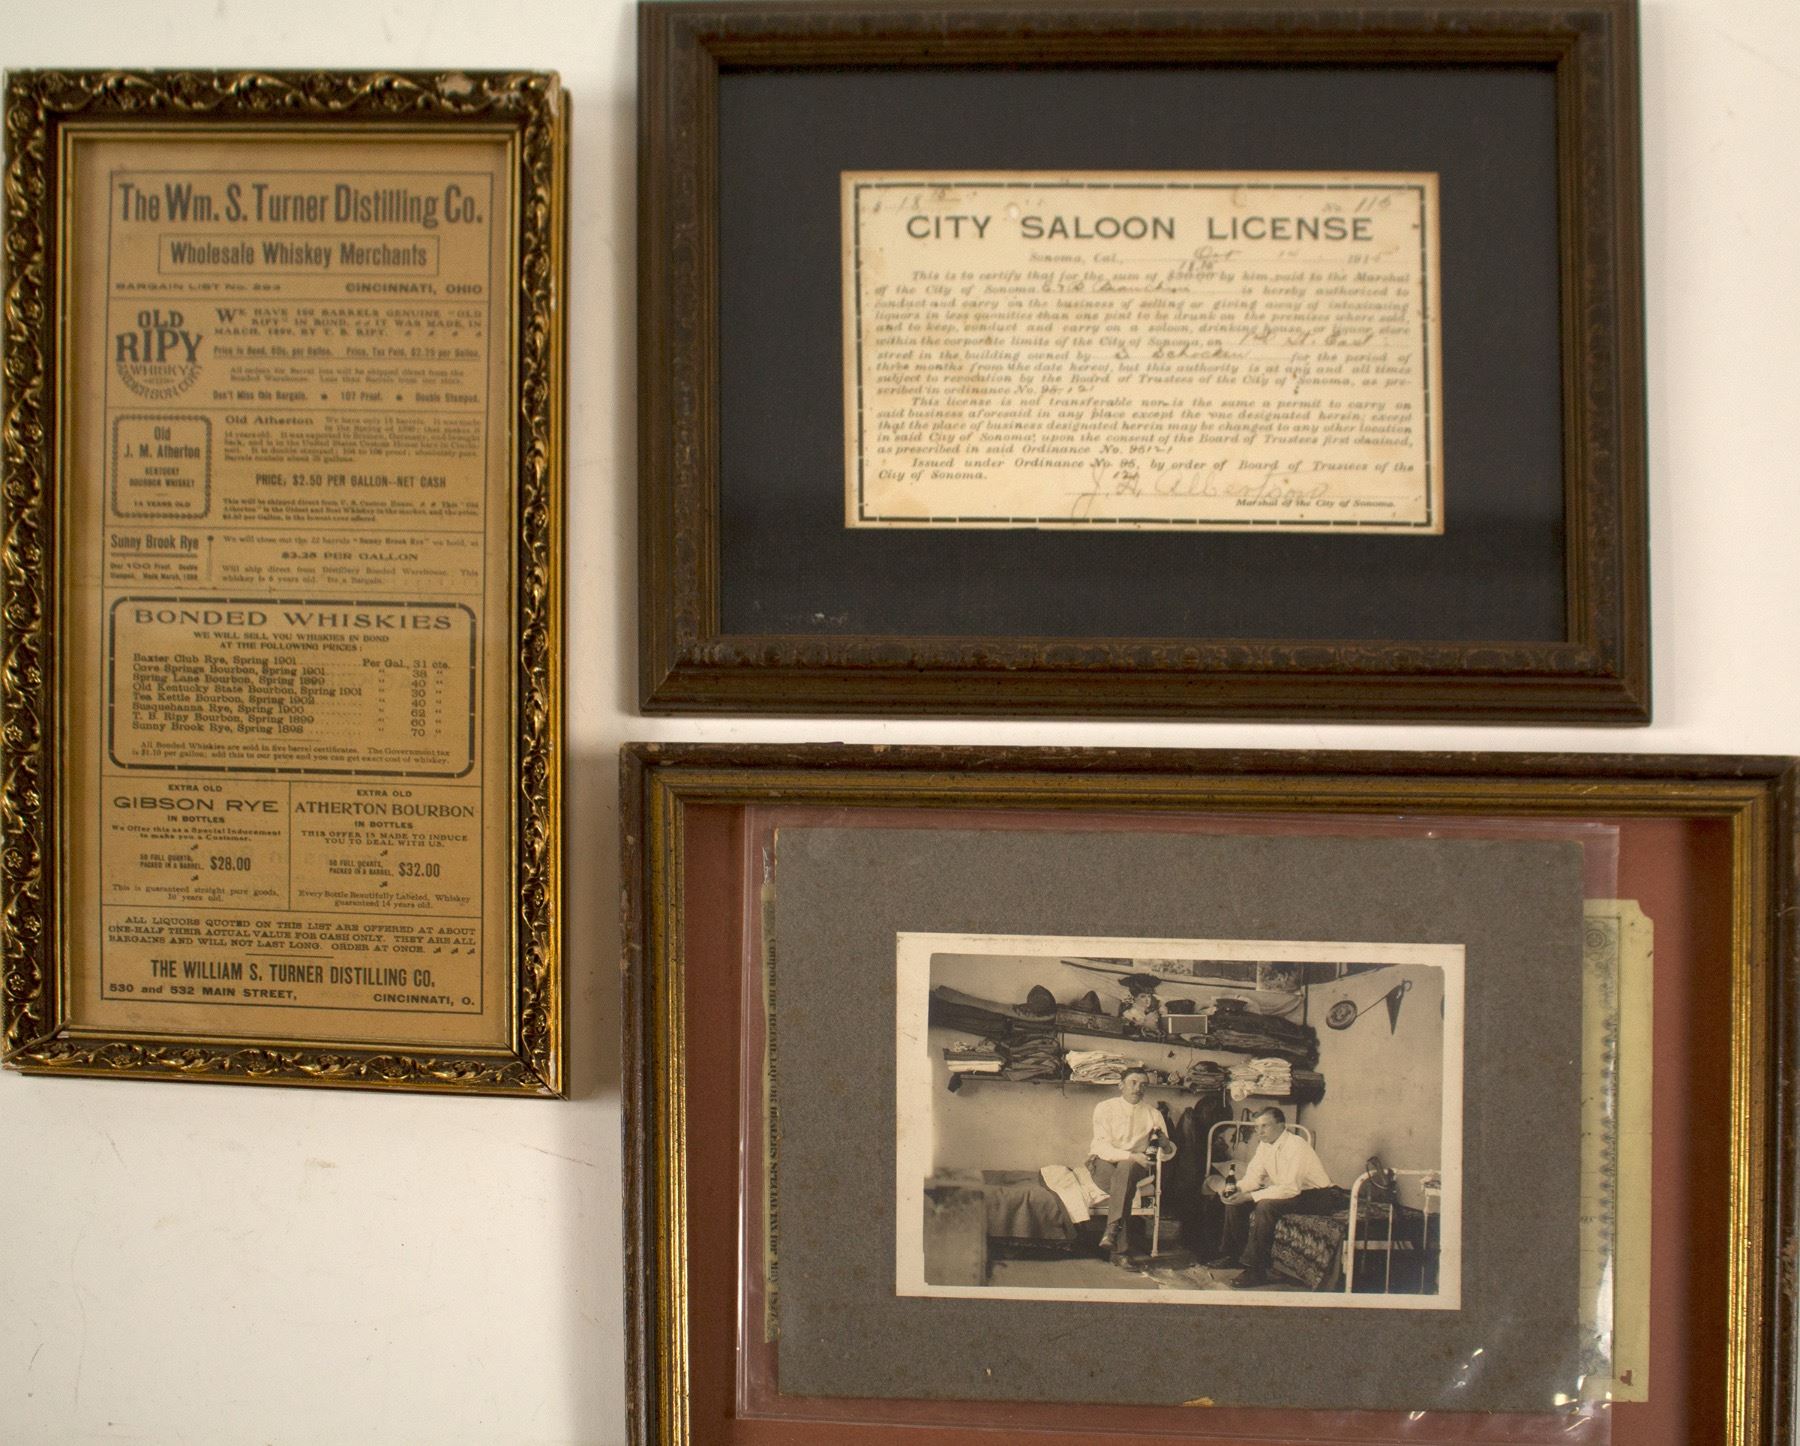 The Wm. S. Turner Distilling Co.
Wholesale Whiskey Merchants
BARGAIN LIST No. 293 CINCINNATI, OHIO
OLD
RIPY
WHISKY
WE HAVE 100 BARRELS GENUINE "OLD
RIPY" IN BOND. IT WAS MADE, IN
MARCH, 1899, BY T. B. RIPY.
Price in Bond, 60c. per Gallon. Price, Tax Paid, $2.75 per Gallon.
All orders for Barrel lots will be shipped direct from the
Bonded Warehouse. Less than Barrels from our store.
Don't Miss this Bargain. 107 Proof. Double Stamped.
Old
J. M. Atherton
KENTUCKY
BOURBON WHISKEY
14 YEARS OLD
Old Atherton We have only 15 barrels. It was made
in the Spring of 1890; that makes it
14 years old. It was exported to Bremen, Germany, and brought
back, and is in the United States Custom House here in Cincin-
nati. It is double stamped; 104 to 106 proof; absolutely pure.
Barrels contain about 35 gallons.
PRICE, $2.50 PER GALLON--NET CASH
This will be shipped direct from U. S. Custom House. This "Old
Atherton" is the Oldest and Best Whiskey in the market, and the price,
$2.50 per Gallon, is the lowest ever offered.
Sunny Brook Rye
Over 100 Proof. Double
Stamped. Made March, 1898
We will close out the 22 barrels "Sunny Brook Rye" we hold, at
$2.25 PER GALLON
Will ship direct from Distillery Bonded Warehouse. This
whiskey is 6 years old. Its a Bargain.
BONDED WHISKIES
WE WILL SELL YOU WHISKIES IN BOND
AT THE FOLLOWING PRICES:
Baxter Club Rye, Spring 1901 Per Gal., 31 cts.
Cove Springs Bourbon, Spring 1901 " 38 "
Spring Lane Bourbon, Spring 1899 " 40 "
Old Kentucky State Bourbon, Spring 1901 " 30 "
Tea Kettle Bourbon, Spring 1902 " 40 "
Susquehanna Rye, Spring 1900 " 62 "
T. B. Ripy Bourbon, Spring 1899 " 60 "
Sunny Brook Rye, Spring 1898 " 70 "
All Bonded Whiskies are sold in five barrel certificates. The Government tax
is $1.10 per gallon; add this to our price and you can get exact cost of whiskey.
EXTRA OLD
GIBSON RYE
IN BOTTLES
We Offer this as a Special Inducement
to make you a Customer.
50 FULL QUARTS,
PACKED IN A BARREL, $28.00
This is guaranteed straight pure goods,
10 years old.
EXTRA OLD
ATHERTON BOURBON
IN BOTTLES
THIS OFFER IS MADE TO INDUCE
YOU TO DEAL WITH US.
50 FULL QUARTS,
PACKED IN A BARREL, $32.00
Every Bottle Beautifully Labeled, Whiskey
guaranteed 14 years old.
ALL LIQUORS QUOTED ON THIS LIST ARE OFFERED AT ABOUT
ONE-HALF THEIR ACTUAL VALUE FOR CASH ONLY. THEY ARE ALL
BARGAINS AND WILL NOT LAST LONG. ORDER AT ONCE.
THE WILLIAM S. TURNER DISTILLING CO.
530 and 532 MAIN STREET, CINCINNATI, O.
No. 115
CITY SALOON LICENSE
Sonoma, Cal., Oct 1st 1915
This is to certify that for the sum of $30.00 by him paid to the Marshal
of the City of Sonoma is hereby authorized to
conduct and carry on the business of selling or giving away of intoxicating
liquors in less quantities than one pint to be drunk on the premises where sold,
and to keep, conduct and carry on a saloon, drinking house, or liquor store
within the corporate limits of the City of Sonoma, on 1st St. East
street in the building owned by S Schocken for the period of
three months from the date hereof, but this authority is at any and all times
subject to revocation by the Board of Trustees of the City of Sonoma, as pre-
scribed in ordinance No. 95
This license is not transferable nor is the same a permit to carry on
said business aforesaid in any place except the one designated herein; except
that the place of business designated herein may be changed to any other location
in said City of Sonoma, upon the consent of the Board of Trustees first obtained,
as prescribed in said Ordinance No. 95
Issued under Ordinance No. 95, by order of Board of Trustees of the
City of Sonoma.
J H Albertson
Marshal of the City of Sonoma.
Coupon for RETAIL LIQUOR DEALERS SPECIAL TAX FOR May,